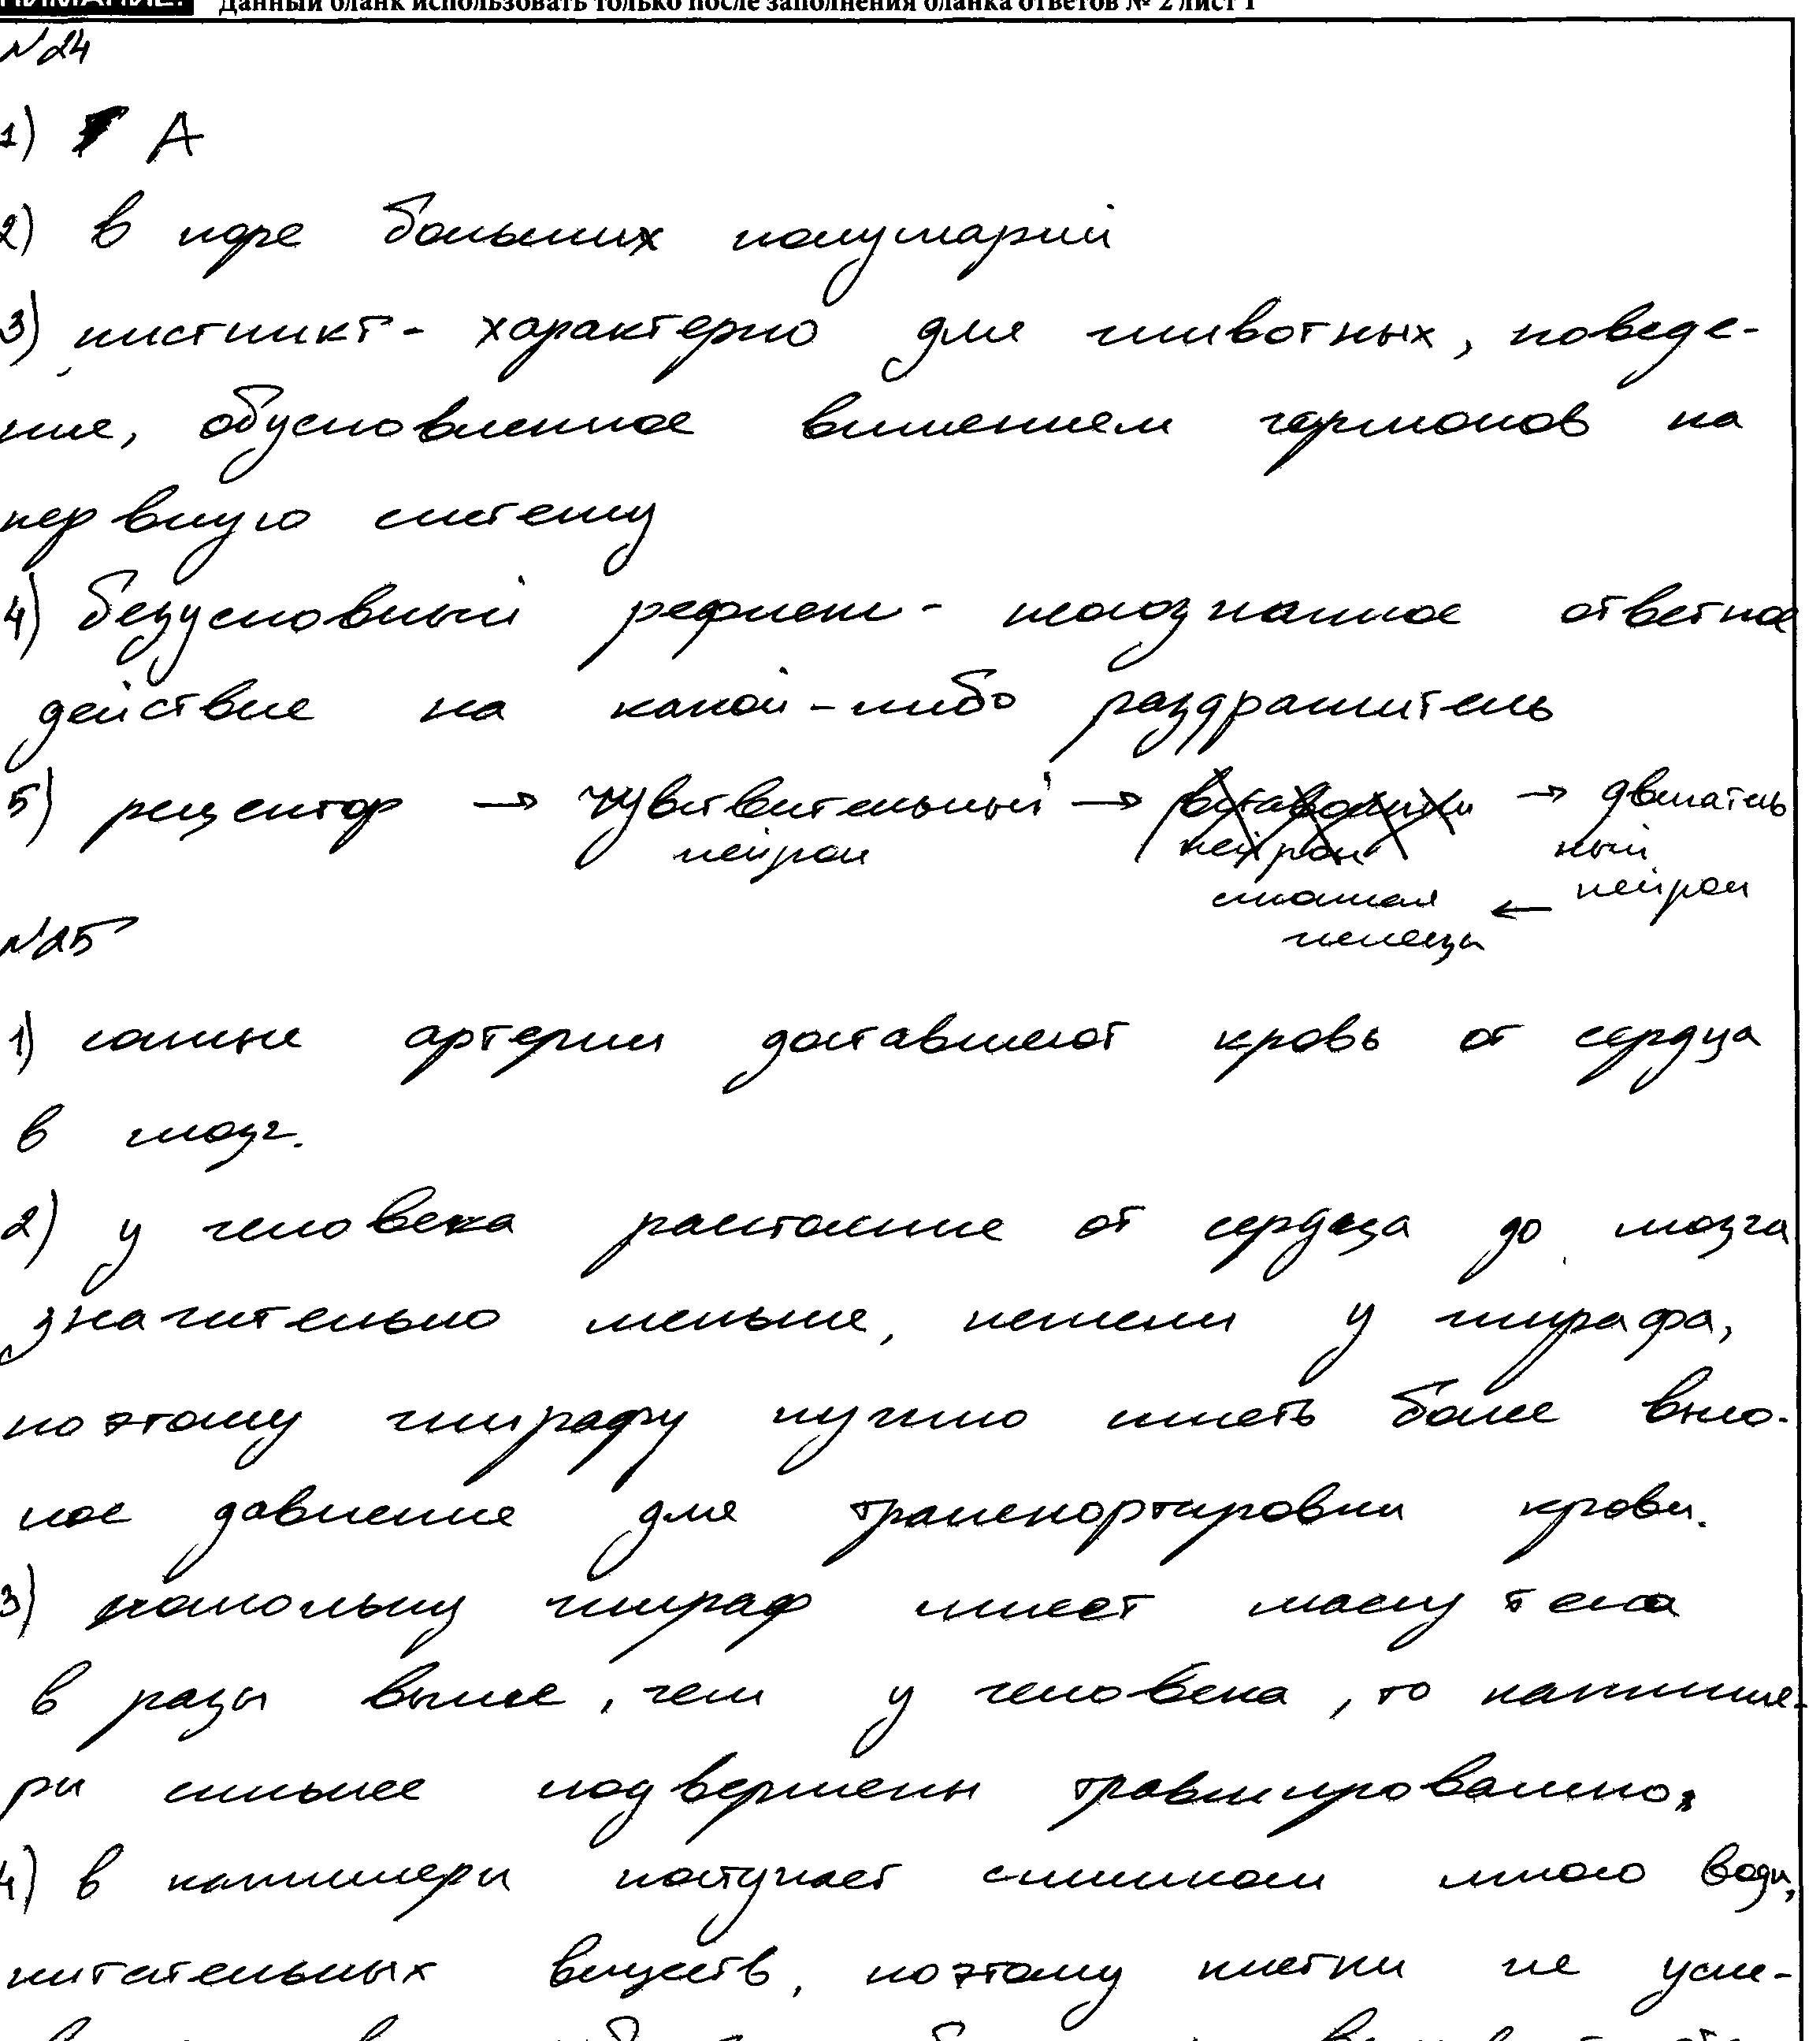 Данный бланк использовать только после заполнения бланка ответов № 2 лист 1
№24
1) А
2) в коре больших полушарий
3) инстинкт - характерно для животных, поведе-
ние, обусловленное влиянием гормонов на
нервную систему
4) безусловный рефлекс - неосознанное ответное
действие на какой-либо раздражитель
5) рецептор → чувствительный → вставочный → двигатель
нейрон нейрон ный
слюнная ← нейрон
железы
№25
1) сонные артерии доставляют кровь от сердца
в мозг.
2) у человека расстояние от сердца до мозга
значительно меньше, нежели у жирафа,
поэтому жирафу нужно иметь более высо-
кое давление для транспортировки крови.
3) поскольку жираф имеет массу тела
в разы выше, чем у человека, то капилля-
ры сильнее подвержены травмированию.
4) в капилляры поступает слишком много воды,
питательных веществ, поэтому клетки не успе-